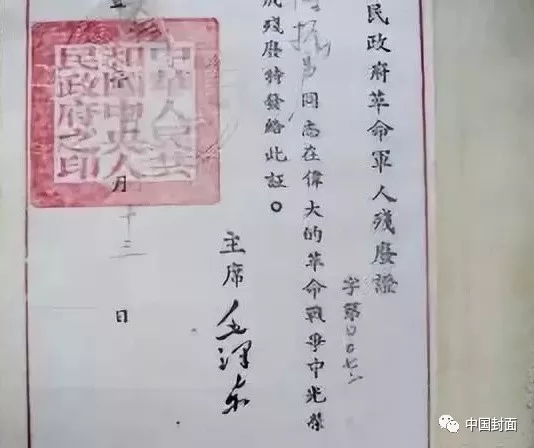 民政府革命軍人殘廢證
字第〇〇七二
振 同志在偉大的革命戰爭中光榮
成殘廢特發給此証。
主席 毛澤东
月 十三 日
中華人民共
和國中央人
民政府之印
中国封面